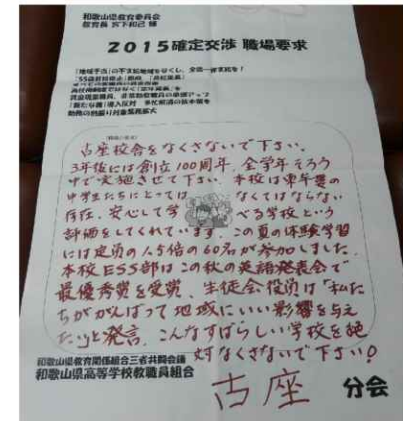 和歌山県教育委員会
教育長 宮下和己 様
2015確定交渉 職場要求
「地域手当」の不支給地域をなくし、全県一律支給を!
古座校舎をなくさないで下さい。
3年後には創立100周年、全学年そろう
中で実施させて下さい。本校は東牟婁の
中学生たちにとっては なくてはならない
存在、安心して学 べる学校という
評価をしてくれています。この夏の体験学習
には定員の1.5倍の60名が参加しました。
本校ESS部はこの秋の英語発表会で
最優秀賞を受賞、生徒会役員は「私た
ちががんばって地域にいい影響を与え
たい」と発言。こんなすばらしい学校を絶
対なくさないで下さい!
和歌山県教育関係組合三者共闘会議
和歌山県高等学校教職員組合
古座 分会